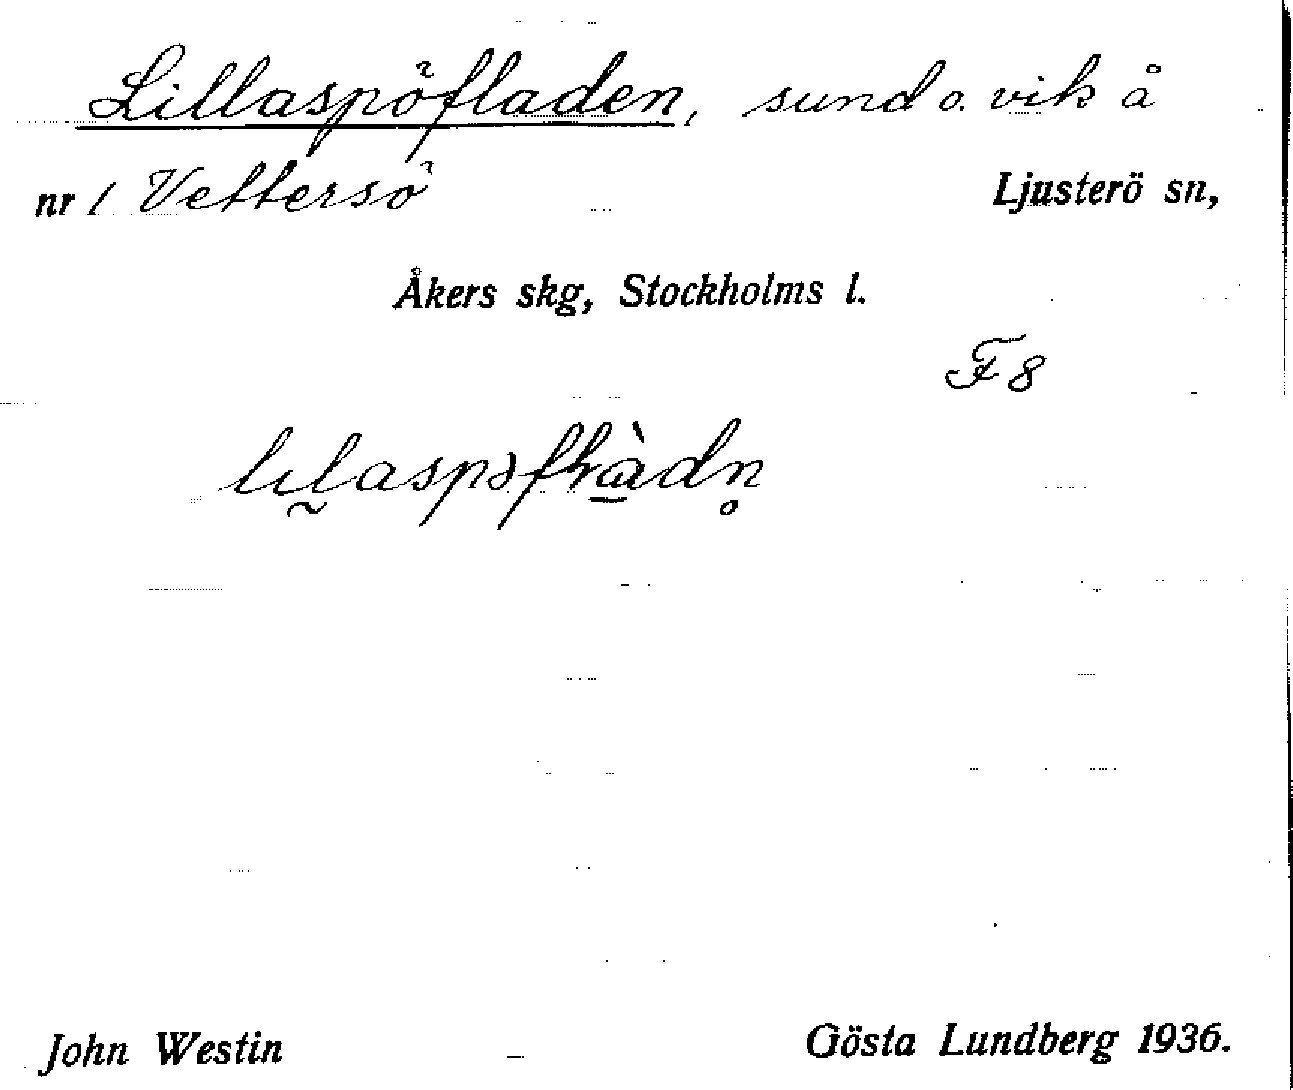 Lillaspöfladen, sund o. vik å
nr 1 Vettersö Ljusterö sn,
Åkers skg, Stockholms l.
F 8
John Westin Gösta Lundberg 1936.